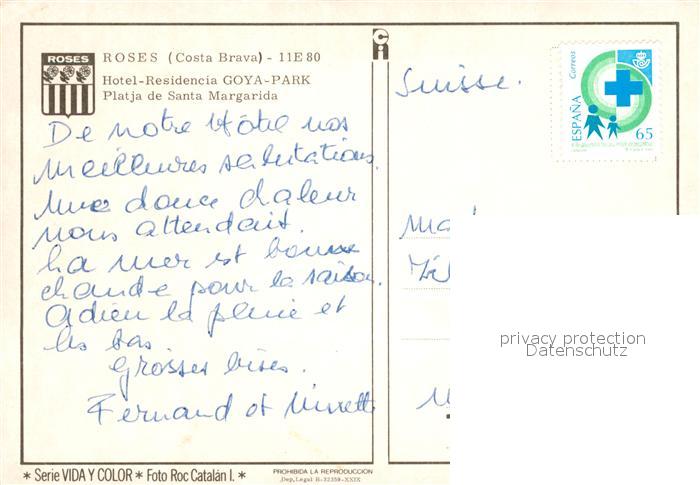 ROSES
ROSES (Costa Brava) - 11E80
Hotel-Residencia GOYA-PARK
Platja de Santa Margarida
De notre Hôtel nos
meilleures salutations.
Une douce chaleur
nous attendait.
La mer est bonne
chaude pour la saison.
Adieu la pluie et
les bas.
Grosses bises.
Fernand et Ninette
* Serie VIDA Y COLOR * Foto Roc Catalán I. *
PROHIBIDA LA REPRODUCCION
Dep. Legal B-32359-XXIX
Suisse.
Correos
ESPAÑA
65
privacy protection
Datenschutz